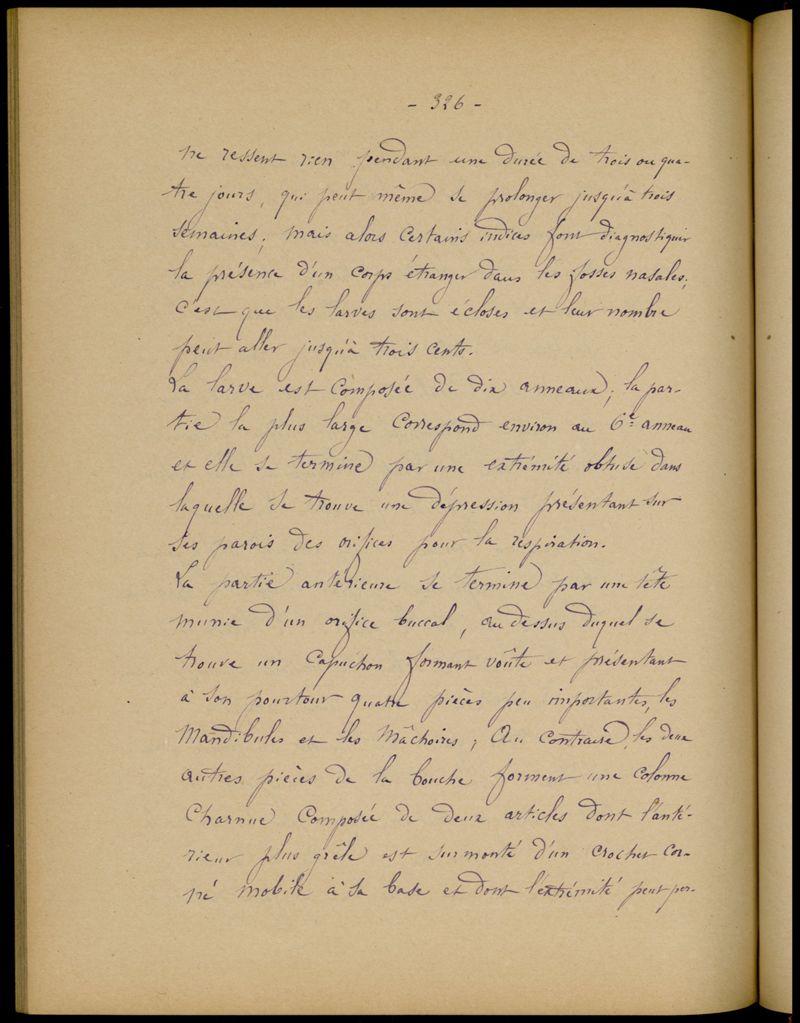 - 326 -
ne ressent rien pendant une durée de trois ou qua-
tre jours, qui peut même se prolonger jusqu'à trois
semaines; mais alors certains indices font diagnostiquer
la présence d'un corps étranger dans les fosses nasales;
c'est que les larves sont écloses et leur nombre
peut aller jusqu'à trois cents.
La larve est composée de dix anneaux; la par-
tie la plus large correspond environ au 6e anneau
et elle se termine par une extrémité obtuse dans
laquelle se trouve une dépression présentant sur
ses parois des orifices pour la respiration.
La partie antérieure se termine par une tête
munie d'un orifice buccal, au dessus duquel se
trouve un capuchon formant voûte et présentant
à son pourtour quatre pièces peu importantes, les
Mandibules et les Mâchoires; Au contraire, les deux
autres pièces de la bouche forment une colonne
charnue composée de deux articles dont l'anté-
rieur plus grêle est surmonté d'un crochet cor-
né mobile à sa base et dont l'extrémité peut per-